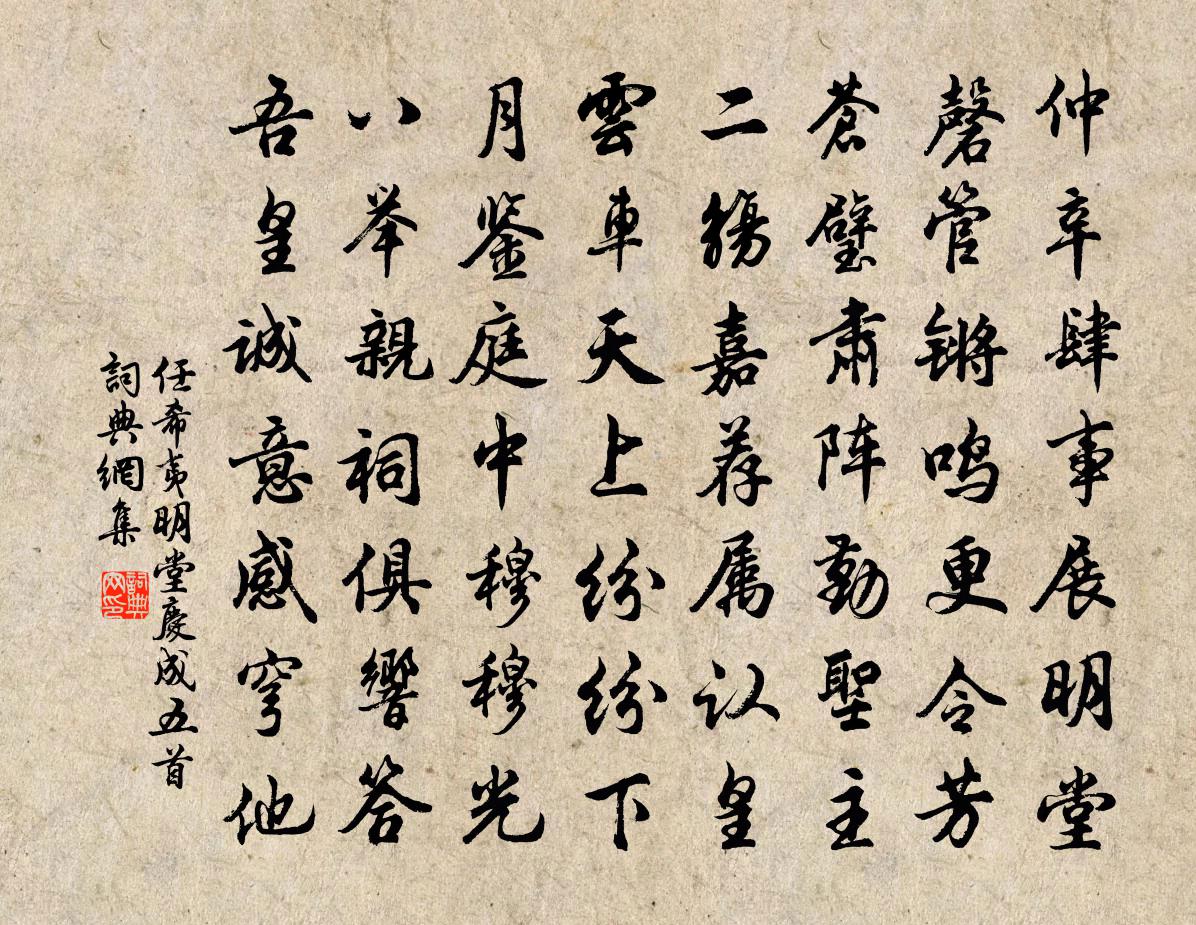 仲辛肆事展明堂
磬管锵鸣更令芳
蒼璧肃阵勤聖主
二觞嘉荐属认皇
雲車天上纷纷下
月鉴庭中穆穆光
八举親祠俱響答
吾皇诚意感穹他
任希夷明堂慶成五首
詞典網集
詞典网印